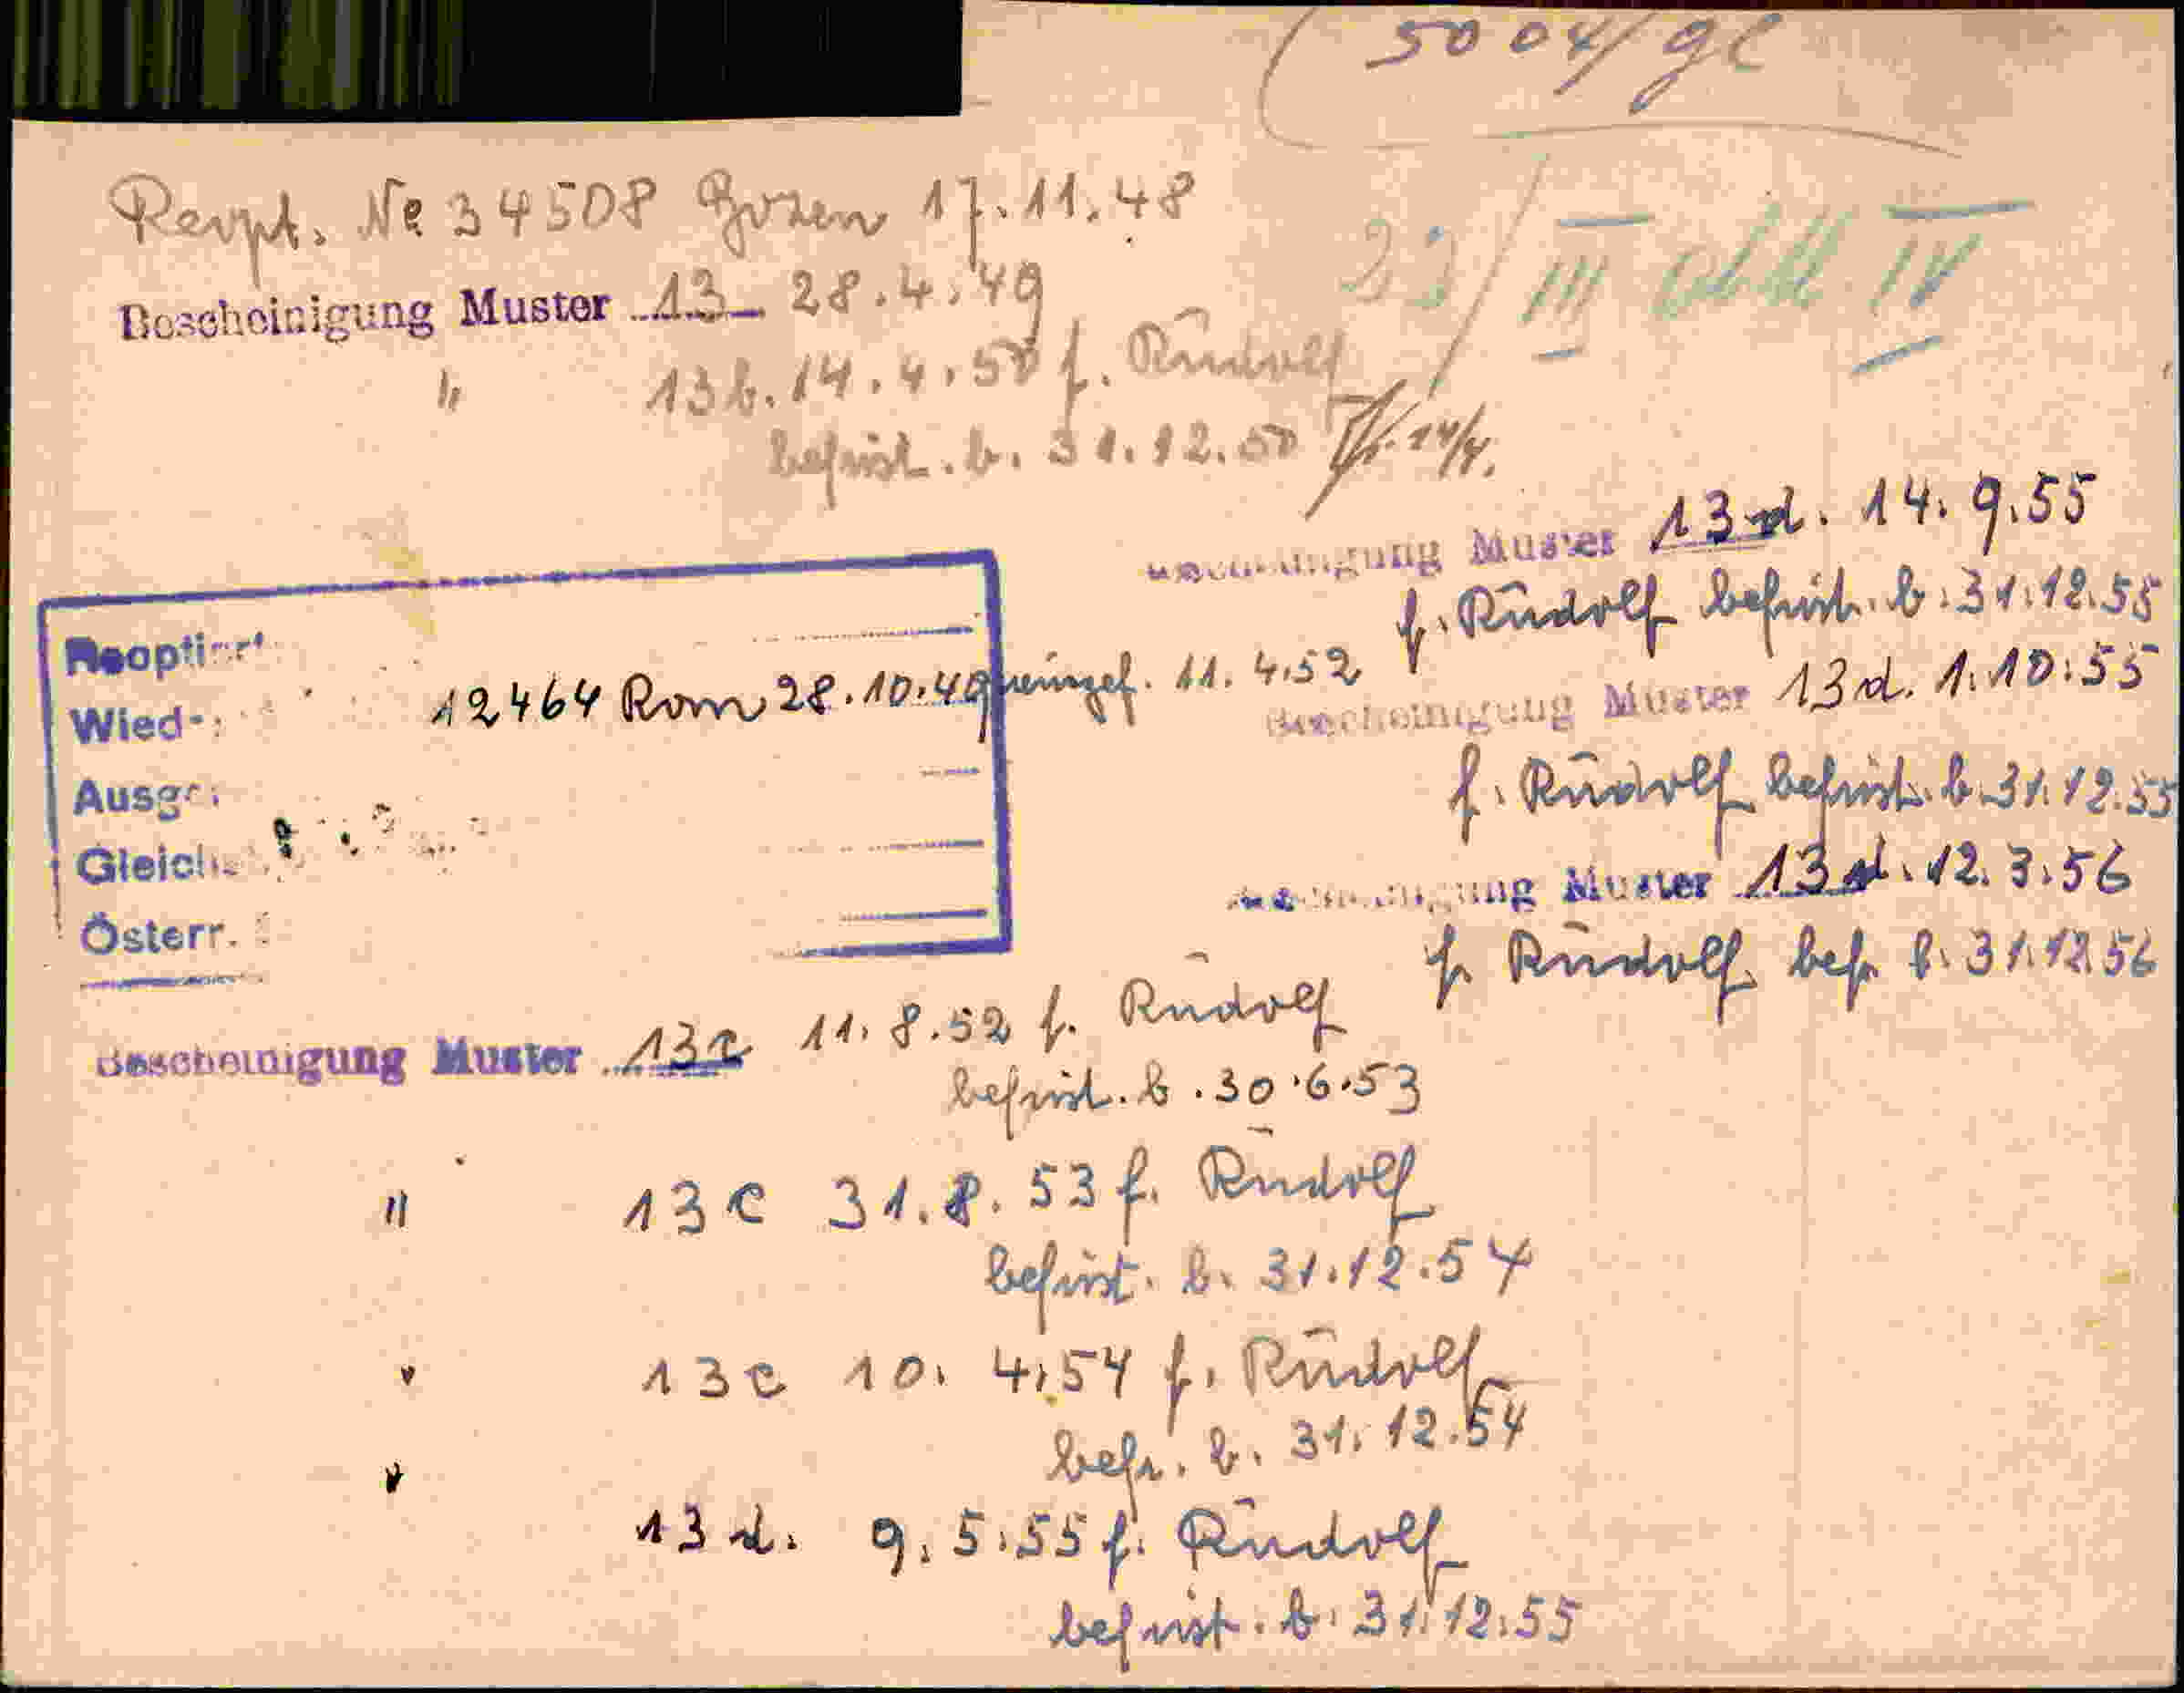 5004/gl
Reopt. No 34508 Bozen 17.11.48
23/III abk IV
Bescheinigung Muster 13 28.4.49
" 13b. 14.4.50 f. Rudolf
befrist. b. 31.12.50 14/4.
Bescheinigung Muster 13d. 14.9.55
f. Rudolf befrist. b. 31.12.55
Reoptiert
Wied
12464 Rom 28.10.49 eingef. 11.4.52
Bescheinigung Muster 13d. 1.10.55
f. Rudolf befrist. b. 31.12.55
Ausge
Gleich
Österr.
Bescheinigung Muster 13d. 12.3.56
f. Rudolf bef. b. 31.12.56
Bescheinigung Muster 13c 11.8.52 f. Rudolf
befrist. b. 30.6.53
" 13c 31.8.53 f. Rudolf
befrist. b. 31.12.54
" 13c 10.4.54 f. Rudolf
befr. b. 31.12.54
" 13d. 9.5.55 f. Rudolf
befrist. b. 31.12.55